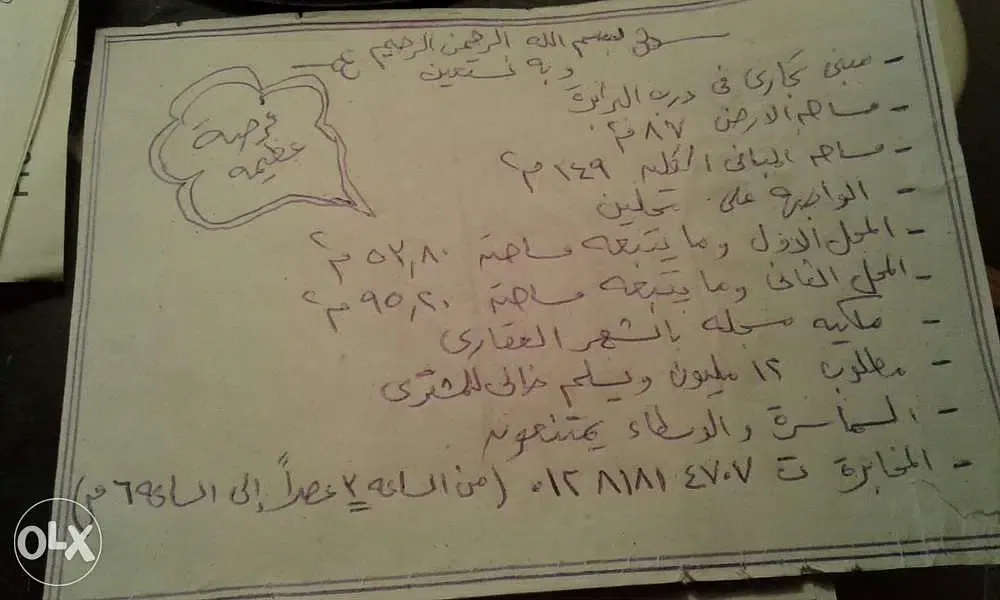 بسم الله الرحمن الرحيم
وبه نستعين
فرصة
عظيمه
- مبنى تجارى فى درب البرابرة
- مساحة الارض ٨٧ م٢
- مساحه المبانى الكليه ١٤٩ م٢
- الواجهه على محلين
- المحل الاول وما يتبعه مساحة ٥٣,٨٠ م٢
- المحل الثانى وما يتبعه مساحة ٩٥,٢٠ م٢
- ملكيه مسجله بالشهر العقارى
- مطلوب ١٢ مليون ويسلم خالى للمشترى
- السماسرة والوسطاء يمتنعون
- المخابرة ت ٠١٢٨١٨١٤٧٠٧ (من الساعه ٣ عصراً إلى الساعه ٦ م)
OLX